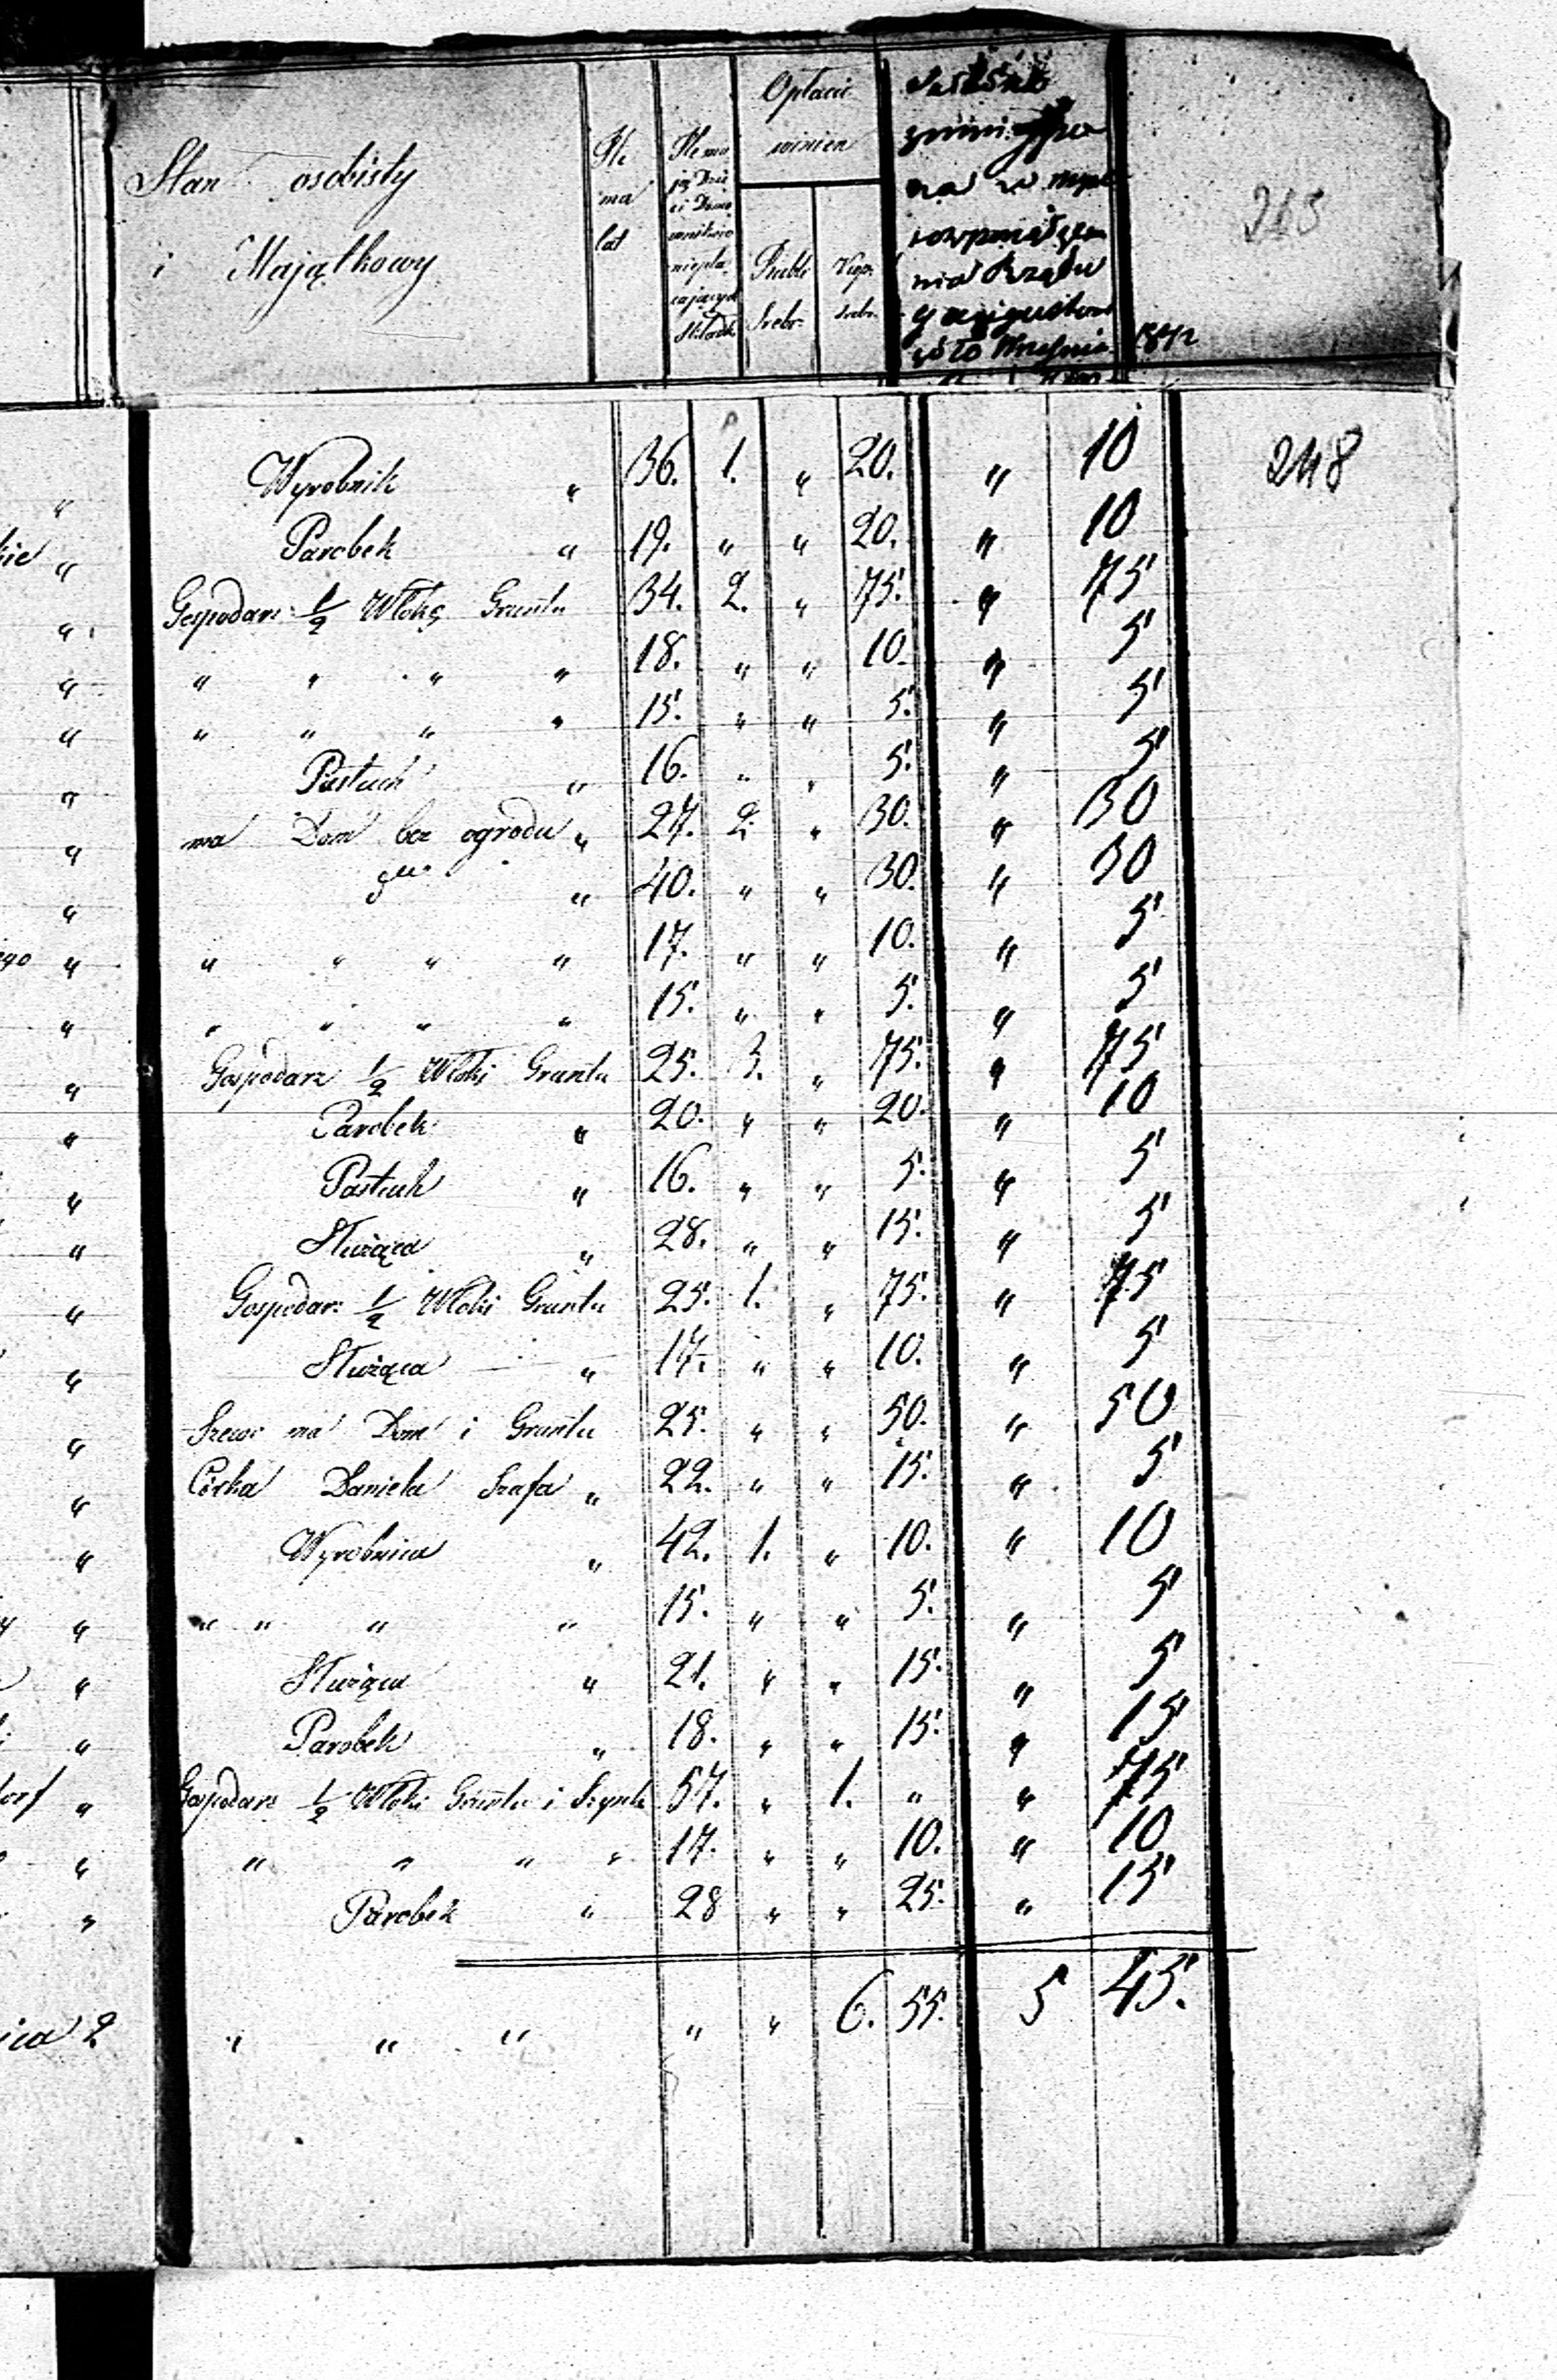 Stan osobisty
i Majątkowy
Ile
ma
lat
Ile ma
Opłacić
winien
Rubli
Srebr.
Kop.
srebr.
Rządu
Września 1842
213
248
" Wyrobnik " 36. 1. " 20. " 10
kie " Parobek " 19. " " 20. " 10
" Gospodarz ½ Włokę Gruntu 34. 2. " 75. " 75
" " " " " 18. " " 10. " 5
" " " " " 15. " " 5. " 5
" Pastuch " 16. " " 5. " 5
" ma Dom bez ogrodu " 27. 2. " 30. " 30
" " 40. " " 30. " 30
ego " " " " " 17. " " 10. " 5
" " " " " 15. " " 5. " 5
" Gospodarz ½ Włoki Gruntu 25. 3. " 75. " 75
" Parobek " 20. " " 20. " 10
" Pastuch " 16. " " 5. " 5
" Służąca " 28. " " 15. " 5
" Gospodar: ½ Włoki Gruntu 25. 1. " 75. " 75
" Służąca " 17. " " 10. " 5
" Szewc ma Dom i Gruntu 25. " " 50. " 50
" Córka Daniela Szafa " 22. " " 15. " 5
" Wyrobnica " 42. 1. " 10. " 10
" " " " " 15. " " 5. " 5
" Służąca " 21. " " 15. " 5
" Parobek " 18. " " 15. " 15
dorf " Gospodarz ½ Włoki Gruntu i Szynk 57. " 1. " " 75
" " " " " 17. " " 10. " 10
" Parobek " 28 " " 25. " 15
ica 2 " " " " " 6. 55. 5 45.